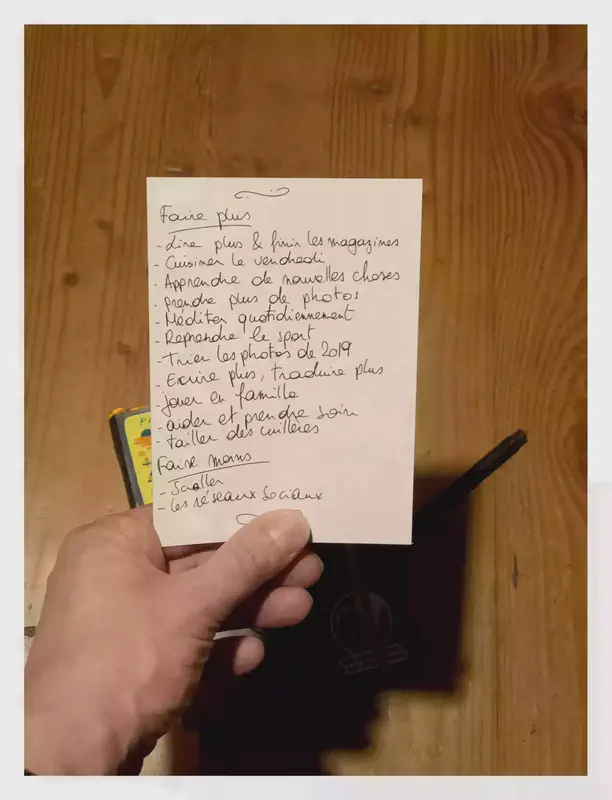 Faire plus
- Lire plus & finir les magazines
- Cuisiner le vendredi
- Apprendre de nouvelles choses
- prendre plus de photos
- Méditer quotidiennement
- Reprendre le sport
- Trier les photos de 2019
- Ecrire plus, traduire plus
- jouer en famille
- aider et prendre soin
- tailler des cuillères
Faire moins
- Scroller
- Les réseaux sociaux